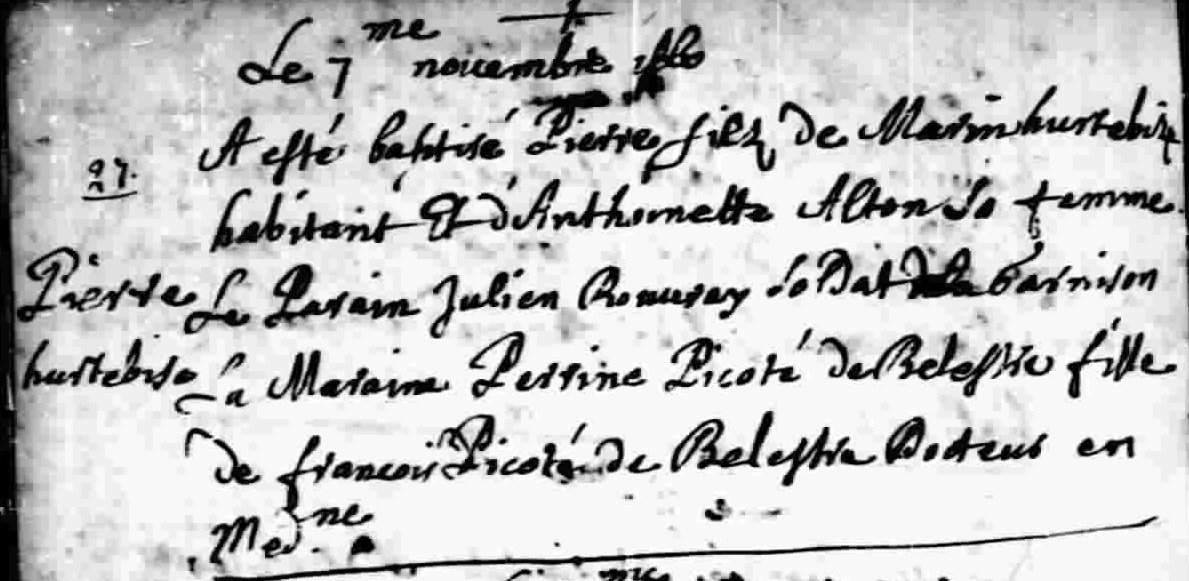 Le 7me novembre
27.
A esté baptisé Pierre filz de Marin hurtebize
habitant Et d'Anthoinette Alton sa femme.
Pierre
Le Parain Julien soldat de la Garnison
hurtebise
La Maraine Perrine Picoté de Belestre fille
de francois Picoté de Belestre Docteur en
Medne.